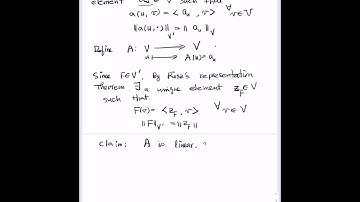 element a_u ∈ V such that
a(u, v) = < a_u , v > ∀ v∈V
‖a(u,·)‖_{V'} = ‖ a_u ‖
Define A: V ⟶ V
u ⟼ A(u) = a_u
Since F∈V', By Riesz's representation
Theorem ∃ a unique element z_F ∈ V
such that
F(v) = < z_F , v > ∀ v∈V
‖F‖_{V'} = ‖z_F‖
Claim: A is linear.